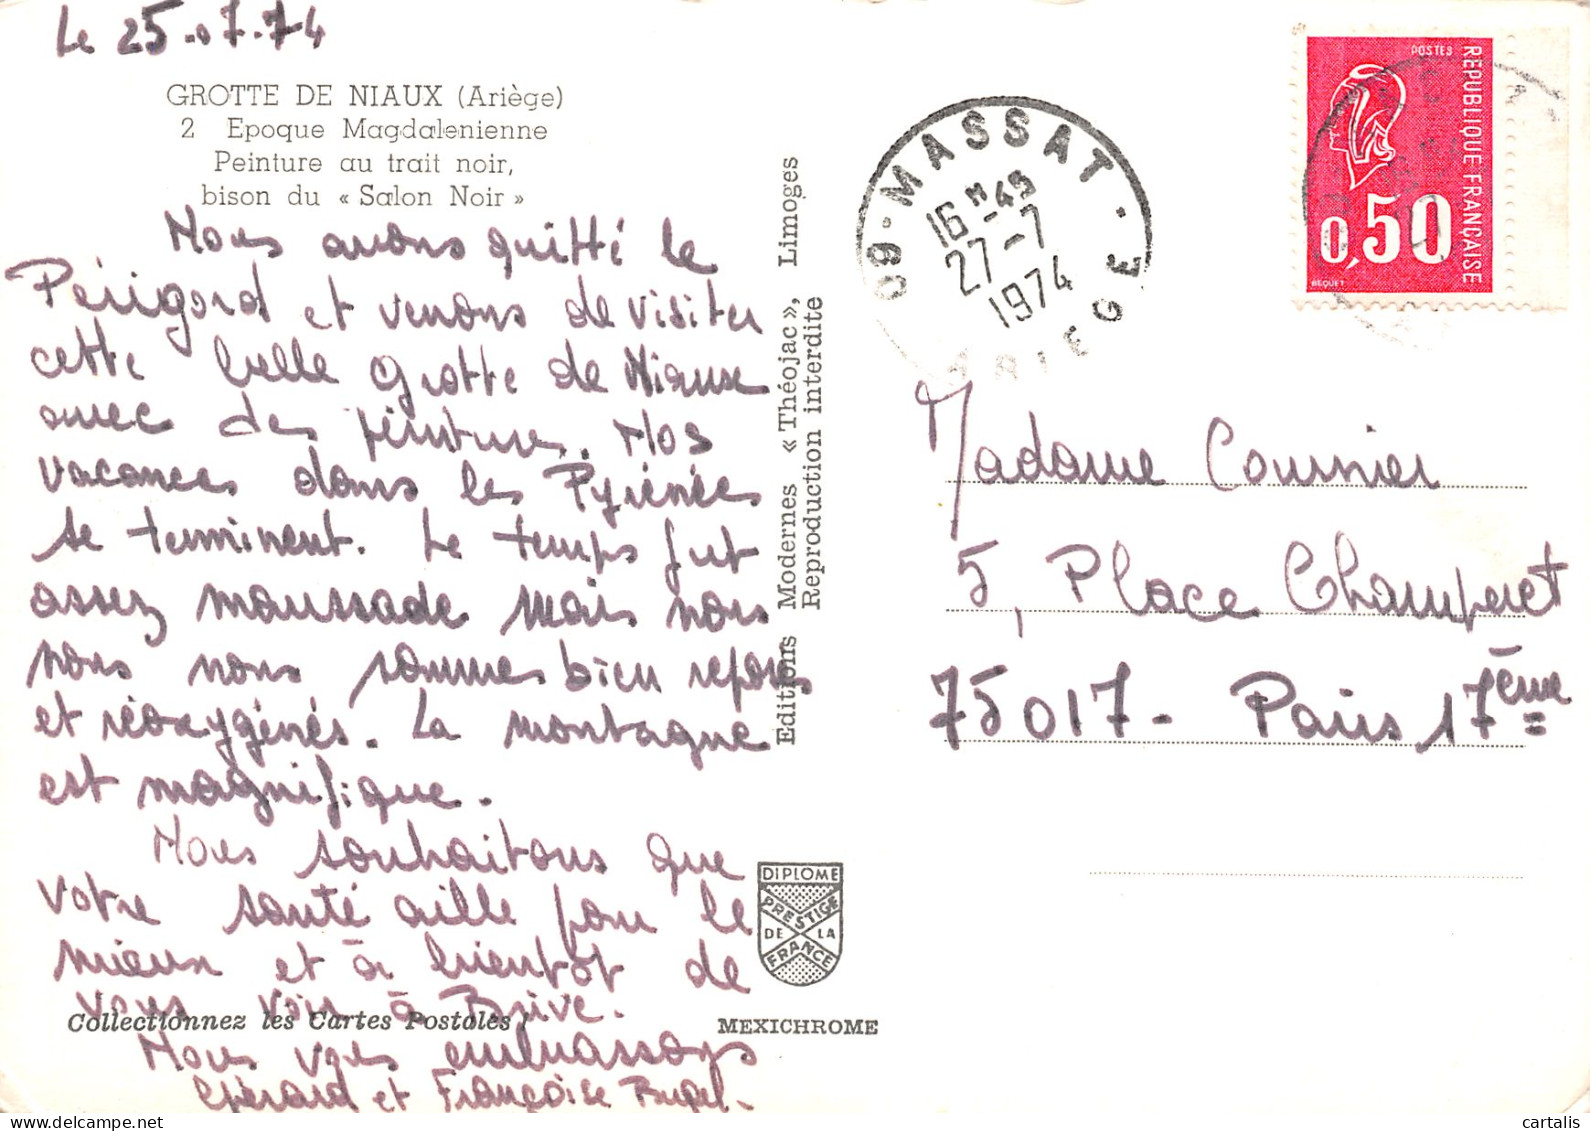 Le 25.07.74
GROTTE DE NIAUX (Ariège)
2 Epoque Magdalenienne
Peinture au trait noir,
bison du « Salon Noir »
Nous avons quitté le
Périgord et venons de visiter
cette belle grotte de Niaux
avec des peintures. Nos
vacances dans les Pyrénées
se terminent. Le temps fut
assez maussade mais nous
nous nous sommes bien reposés
et réoxygénés. La montagne
est magnifique.
Nous souhaitons que
votre santé aille pour le
mieux et à bientôt de
vous voir à Brive.
Collectionnez les Cartes Postales !
Nous vous embrassons
Gérard et Françoise
Editions Modernes « Théojac », Limoges
Reproduction interdite
DIPLOME
PRESTIGE
DE LA
FRANCE
MEXICHROME
09-MASSAT
16H-45
27-7
1974
ARIEGE
POSTES
REPUBLIQUE FRANÇAISE
0,50
BEQUET
Madame Cournier
5, Place Champeret
75017 - Paris 17ème
cartalis